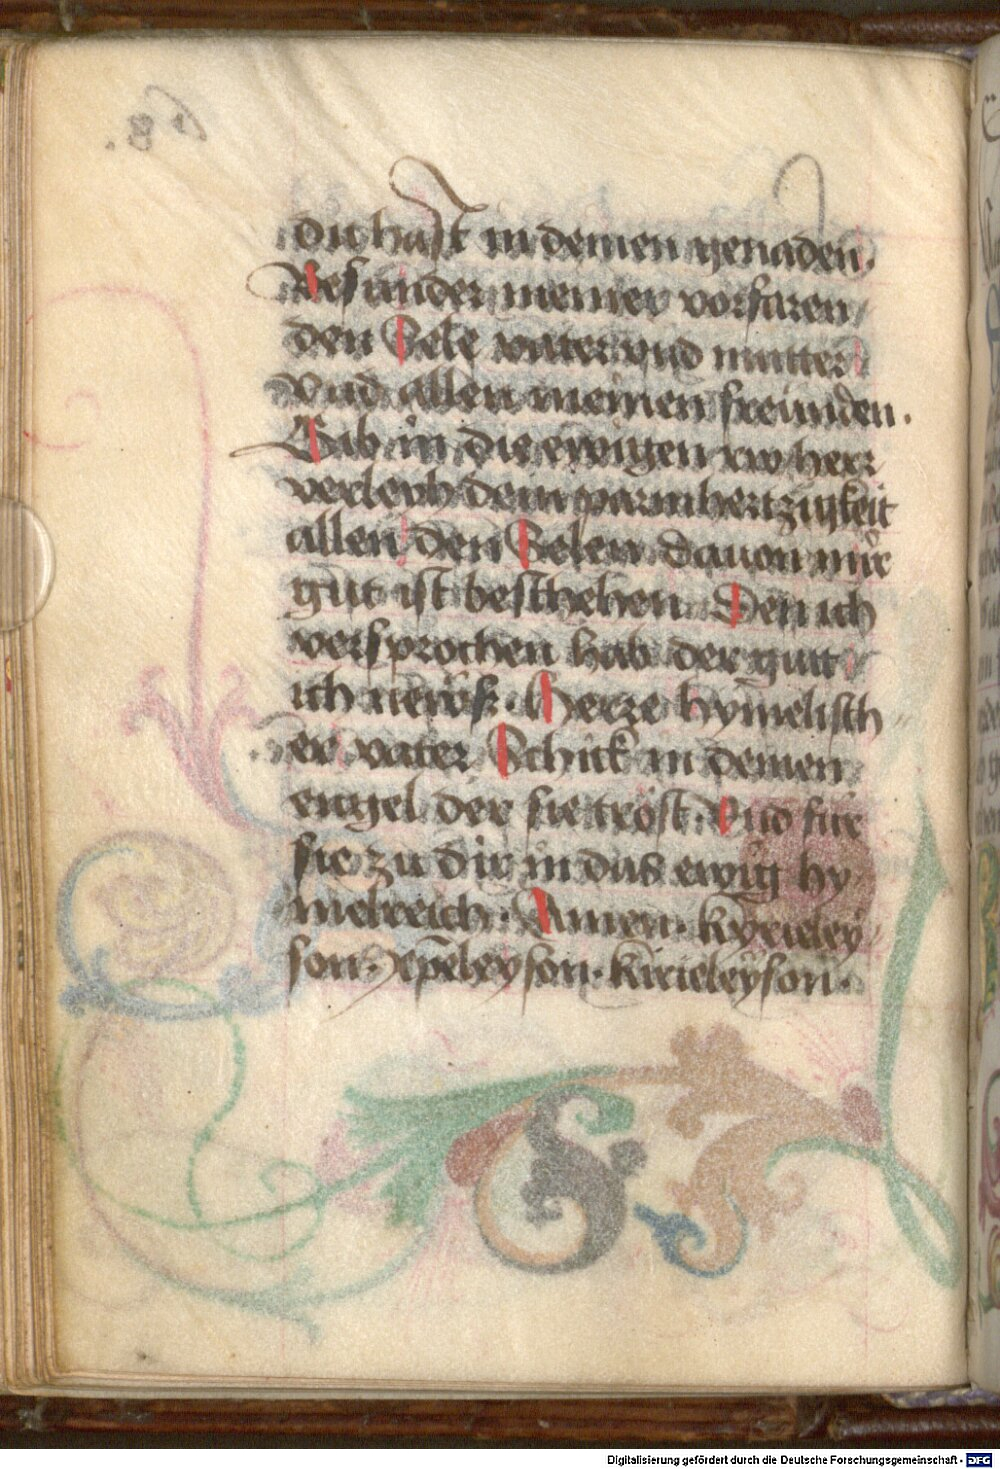 du hast in deinen genaden.
Besunder meiner vorfaren
den Sele vater vnd mutter
Vnd allen meinen freunden.
Gib in die ewigen rw herr
verleyh dein parmhertzigkeit
allen den Selen dauon mir
gut ist beschehen Den ich
versprochen hab der gutt
ich neüß. Herre hymelisch
er vater Schick in deinen
engel der sie tröst. Vnd für
sie zu dir in das ewig hy
melreich. Amen. kyrieley
son. xp̄eleyson. kirieleyson.
68.
Digitalisierung gefördert durch die Deutsche Forschungsgemeinschaft - DFG